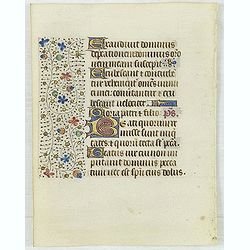 Exaudivit dominus
deprecationem dominus oro
nem meam suscepit
Erubescant et conturbe
tur vehementer omnes inimi
ci mei convertantur et eru
bescant
Gloria patri et filio Ps
Beati quorum re
misse sunt iniqui
tates et quorum tecta st pcca
Beatus vir cui non im
putavit dominus pecca
tum nec est spiritu eius dolus